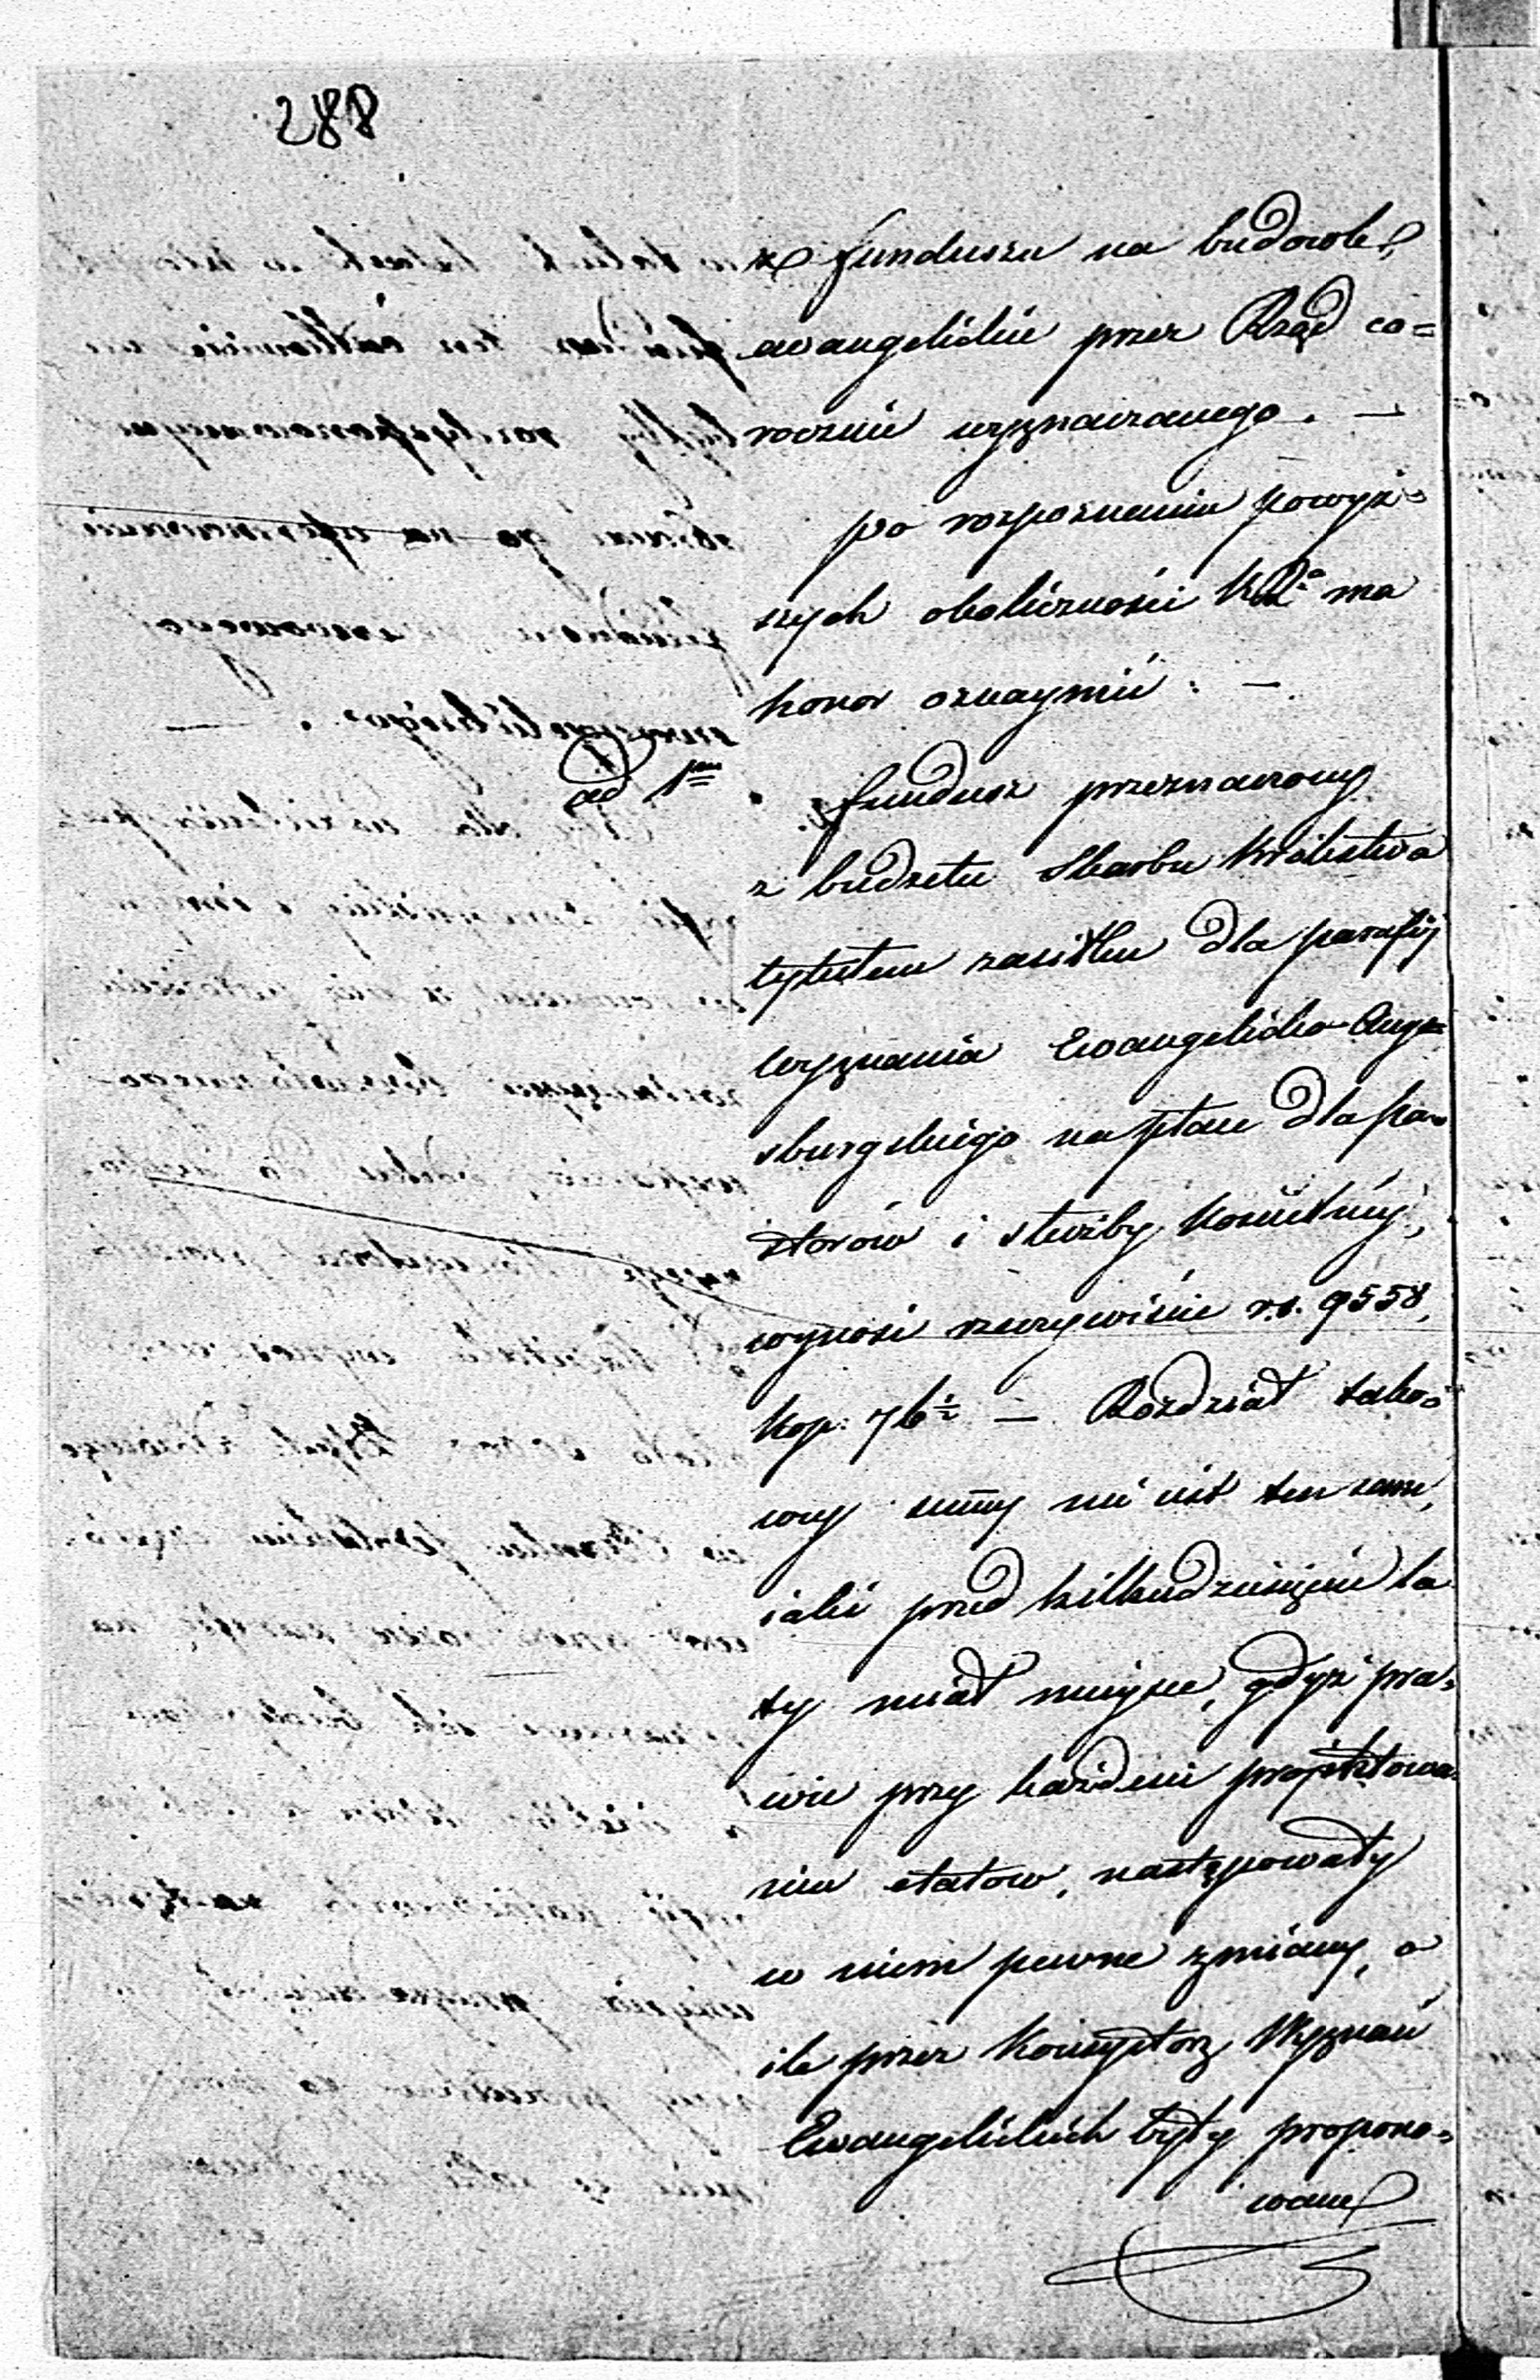 288
z funduszu na budowle
ewangelickie przez Rząd co=
rocznie wyznaczanego. —
Po rozpoznaniu powyż=
szych okoliczności ma
honor oznaymić: —
ad 1mum Fundusz przeznaczony
z budżetu Skarbu Królestwa
tytułem zasiłku dla parafij
wyznania Ewangelicko-Augs=
burgskiego na płace dla pa=
storów i służby kościelnéj,
wynosi rzeczywiście rs. 9558,
kop. 76½ — Rozdział tako=
wéj summy nie iest ten sam,
iaki przed kilkudziesięcią la
ty miał mieysce, gdyż pra=
wie przy każdem projektowa=
niu etatow, następowały
w niem pewne zmiany, o
ile przez Konsystorz Wyznań
Ewangelickich były propono=
wane